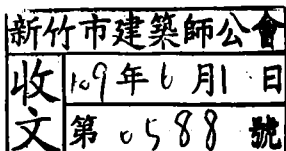 新竹市建築師公會
收文
109年6月1日
第0588號